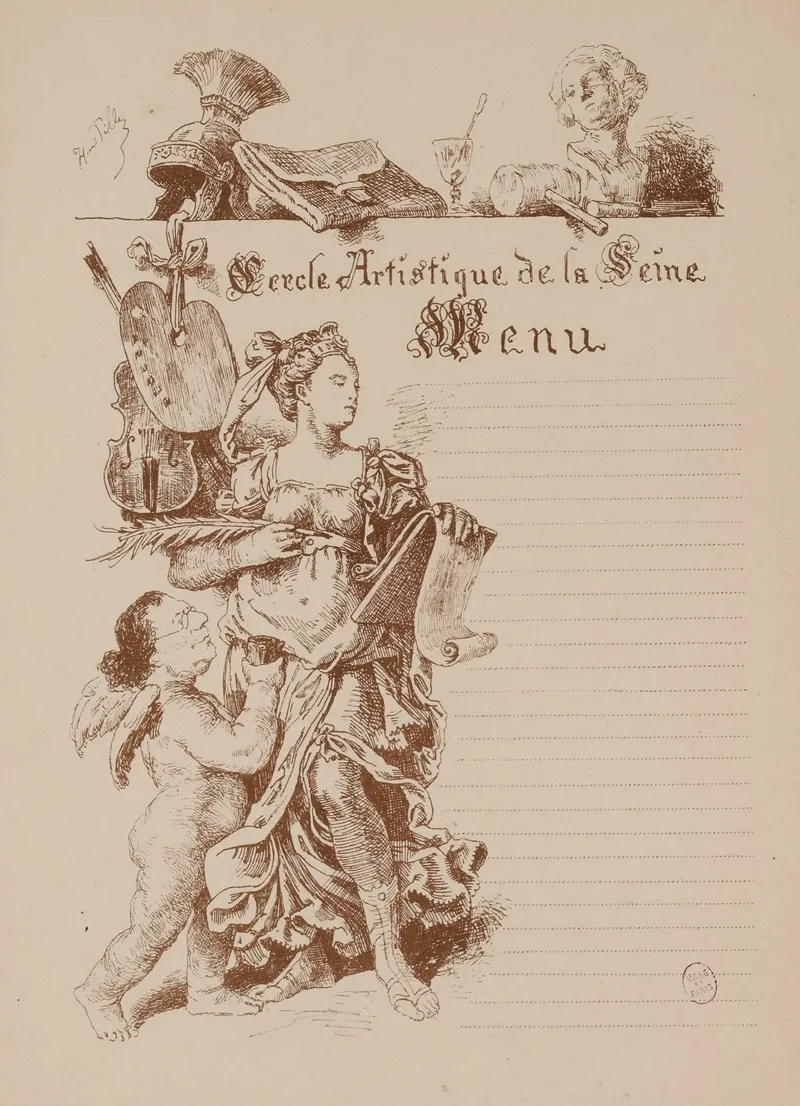 Cercle Artistique de la Seine
Menu
VILLE
DE
PARIS